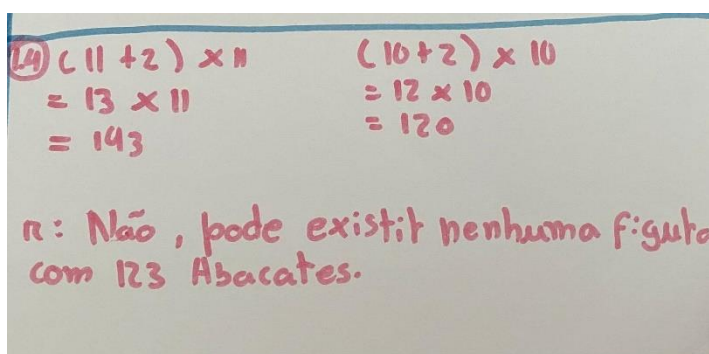 1.4) (11+2) × 11
= 13 × 11
= 143
(10+2) × 10
= 12 × 10
= 120
r: Não, pode existir nenhuma figura
com 123 Abacates.